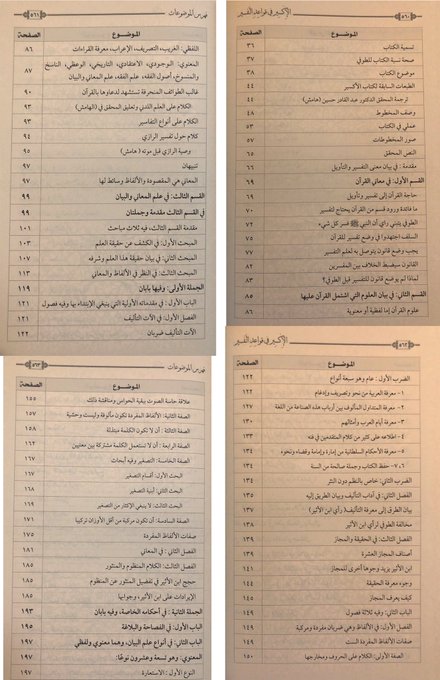 ٥٦٠ الإكسير في قواعد التفسير
الموضوع الصفحة
تسمية الكتاب ٣٦
صحة نسبة الكتاب للطوفي ٣٧
موضوع الكتاب ٣٨
الطبعات السابقة لكتاب الأكسير ٤٤
ترجمة المحقق الدكتور عبد القادر حسين (هامش) ٤٤
وصف المخطوط ٤٨
عملي في الكتاب ٥٣
صور المخطوطات ٥٧
النص المحقق ٦٥
مقدمة : في بيان معنى التفسير والتأويل ٦٦
القسم الأول: في معاني القرآن ٦٩
حاجة القرآن إلى تفسير وتأويل ٦٩
ما فائدة ورود قسم من القرآن يحتاج لتفسير ٧٠
الطوفي يتبنى رأي أن النبي ﷺ فسر كل شيء ٧٢
السلف اجتهدوا في وضع تفسير للقرآن ٧٥
يجب وضع قانون يتوصل به لعلم التفسير ٧٧
القانون سيضبط الخلاف بين المفسرين ٨٢
لماذا لم يوضع قانون للتفسير قبل الطوفي؟ ٨٣
القسم الثاني: في بيان العلوم التي اشتمل القرآن عليها ٨٥
علوم القرآن إما لفظية أو معنوية ٨٦
فهرس الموضوعات ٥٦١
الموضوع الصفحة
اللفظي: الغريب، التصريف، الإعراب، معرفة القراءات ٨٦
المعنوي: الوجودي، الاعتقادي، التاريخي، الوعظي، الناسخ والمنسوخ، أصول الفقه، علم الفقه، علم المعاني والبيان ٨٧
غالب الطوائف المنحرفة تستشهد لدعاوها بالقرآن ٩٠
الكلام على العلم اللدني وتعليق المحقق في (الهامش) ٩٣
الكلام على أنواع التفاسير ٩٣
كلام حول تفسير الرازي ٩٤
وصية الرازي قبل موته (هامش) ٩٥
تنبيهان ٩٧
المعاني هي المقصودة والألفاظ وسائط لها ٩٧
القسم الثالث: في علم المعاني والبيان ٩٩
في القسم الثالث مقدمة وجملتان ٩٩
مقدمة القسم الثالث، فيه ثلاث مباحث ١٠١
المبحث الأول: في الكشف عن حقيقة العلم ١٠٣
المبحث الثاني: في بيان حقيقة هذا العلم وشرفه ١٠٧
المبحث الثالث: في النظر في الألفاظ والمعاني ١١٣
الجملة الأولى: وفيها بابان ١١٩
الباب الأول: في مقدماته الأولية التي ينبغي الإبتداء بها وفيه فصول ١٢١
الفصل الأول: في آلات التأليف ١٢١
آلات التأليف ضربان ١٢٢
٥٦٢ الإكسير في قواعد التفسير
الموضوع الصفحة
الضرب الأول: عام وهو سبعة أنواع ١٢٢
١ - معرفة العربية من نحو وتصريف وإدغام ١٢٢
٢ - معرفة المتداول المألوف بين أرباب هذه الصناعة من اللغة ١٢٧
٣ - معرفة أيام العرب وأمثالهم ١٣٠
٤ - اطلاعه على كثير من كلام المتقدمين في فنه ١٣٣
٥ - معرفة الأحكام السلطانية من إمارة وإمامة وقضاء ونحوه ١٣٤
٦، ٧- حفظ الكتاب وجملة صالحة من السنة ١٣٤
الضرب الثاني: خاص بالنظم دون النثر ١٣٤
الفصل الثاني: في آداب التأليف وبيان الطريق إليه ١٣٥
بيان الطرق إلى معرفة التأليف (رأي ابن الأثير) ١٣٧
مخالفة الطوفي لرأي ابن الأثير ١٣٨
الفصل الثالث: في الحقيقة والمجاز ١٣٩
أصناف المجاز العشرة ١٣٩
ابن الأثير يزيد وجوها أخرى للمجاز ١٤١
وجوه معرفة الحقيقة ١٤٤
كيف يعرف المجاز ١٤٥
الباب الثاني: وفيه ثلاثة فصول ١٤٩
الفصل الأول: في الألفاظ وهي ضربان مفردة ومركبة ١٤٩
صفات الألفاظ المفردة الست ١٤٩
الصفة الأولى: الكلام على الحروف ومخارجها ١٥٠
فهرس الموضوعات ٥٦٣
الموضوع الصفحة
علاقة حاسة الصوت ببقية الحواس ومناقشة ذلك ١٥٥
الصفة الثانية: الألفاظ المفردة تكون مألوفة وليست وحشية ١٥٧
الصفة الثالثة : أن لا تكون الكلمة مبتذلة ١٥٨
الصفة الرابعة : أن لا تستعمل الكلمة مشتركة بين معنيين ١٦٢
الصفة الخامسة: التصغير وفيه أبحاث ١٦٧
البحث الأول: أقسام التصغير ١٦٧
البحث الثاني: أبنية التصغير ١٦٨
البحث الثالث: لا ينبغي الإكثار من التصغير ١٦٩
الصفة السادسة: أن تكون مركبة من أقل الأوزان تركيبا ١٧١
صفات الألفاظ المفردة ١٧٥
الفصل الثاني : في المعاني ١٨١
الفصل الثالث: الكلام المنظوم والمنثور ١٨٥
حجج ابن الأثير في تفضيل المنثور عن المنظوم ١٨٥
الإيرادات على ابن الأثير، وجوابها ١٨٥
الجملة الثانية : في أحكامه الخاصة، وفيه بابان ١٩٣
الباب الأول: في الفصاحة والبلاغة ١٩٥
الباب الثاني: في أنواع علم البيان، وهما معنوي ولفظي ١٩٧
المعنوي: وهو تسعة وعشرون نوعًا: ١٩٧
النوع الأول : الاستعارة ١٩٧